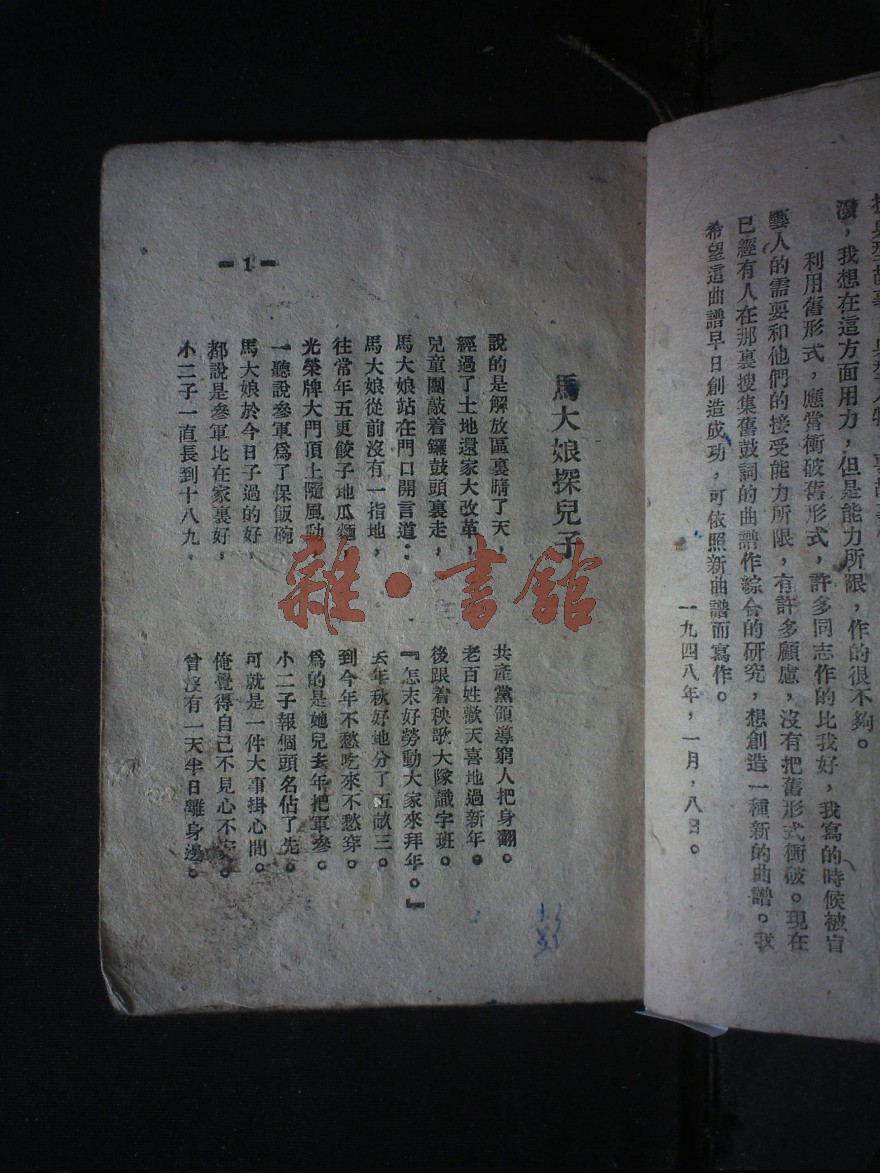 潑，我想在這方面用力，但是能力所限，作的很不夠。
利用舊形式，應當衝破舊形式，許多同志作的比我好，我寫的時候被盲
藝人的需要和他們的接受能力所限，有許多顧慮，沒有把舊形式衝破。現在
已經有人在那裏搜集舊鼓詞的曲譜作綜合的研究，想創造一種新的曲譜。我
希望這曲譜早日創造成功，可依照新曲譜而寫作。
一九四八年，一月，八日。
馬大娘探兒子
說的是解放區裏晴了天，　共產黨領導窮人把身翻。
經過了土地還家大改革，　老百姓歡天喜地過新年。
兒童團敲着鑼鼓頭裏走，　後跟着秧歌大隊識字班。
馬大娘站在門口開言道：　『怎末好勞動大家來拜年。』
馬大娘從前沒有一指地，　去年秋好地分了五畝三。
往常年五更餃子地瓜麵，　到今年不愁吃來不愁穿。
光榮牌大門頂上隨風動，　爲的是她兒去年把軍參。
一聽說參軍爲了保飯碗　小二子報個頭名佔了先。
馬大娘於今日子過的好，　可就是一件大事掛心間。
都說是參軍比在家裏好，　俺覺得自己不見心不安。
小二子一直長到十八九，　曾沒有一天半日離身邊。
-1-
雜·書館